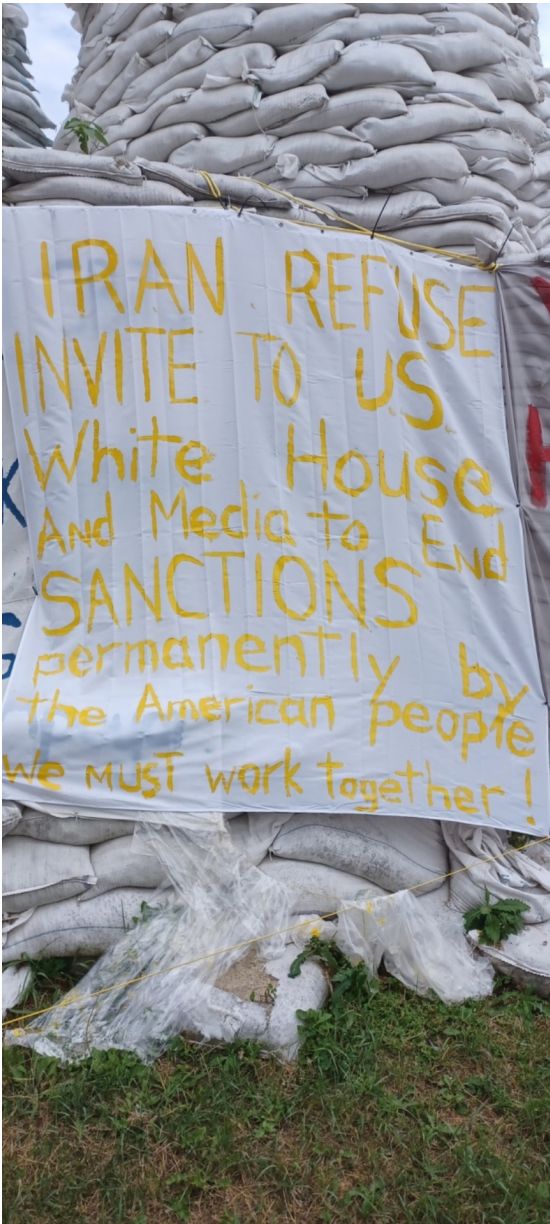 IRAN REFUSE
INVITE TO U.S.
White House
And Media to End
SANCTIONS
permanently by
the American people
We MUST work together!